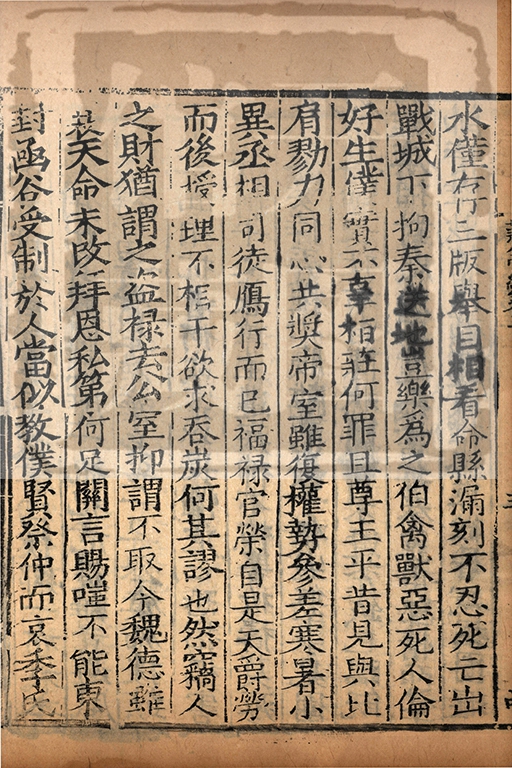 水僅存三版舉目相看命縣漏刻不忍死亡出
戰城下拘秦送地豈樂為之伯禽獸惡死人倫
好生僕實不幸相莊何罪且尊王平昔見與比
肩勠力同心共獎帝室雖復權勢參差寒暑小
異丞相司徒鴈行而已福禄官榮自是天爵勞
而後授理不相干欲求吞炭何其謬也然竊人
之財猶謂之盗禄去公室抑謂不取今魏德雖
衰天命未改拜恩私第何足關言賜嗤不能東
封函谷受制於人當似教僕賢祭仲而哀季氏